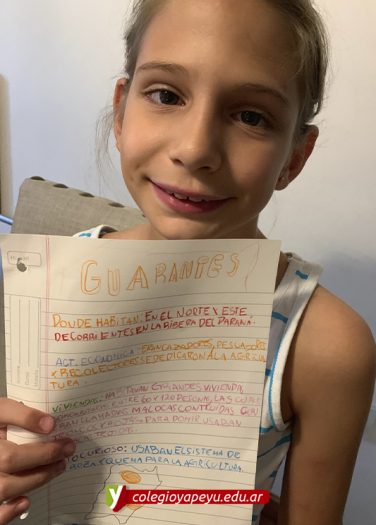 GUARANÍES
DONDE HABITAN: EN EL NORTE Y ESTE
DE CORRIENTES EN LA RIBERA DEL PARANÁ.
ACT. ECONÓMICA: ERAN CAZADORES, PESCADORES
Y RECOLECTORES SE DEDICARON A LA AGRICUL
TURA.
VIVIENDAS: HABITABAN GRANDES VIVIENDAS
ENTRE 60 Y 120 PERSONAS, LAS CUALES
LLAMADAS MALOCAS CONSTRUIDAS CON
PARA DORMIR USABAN
USABAN EL SISTEMA DE
QUEMA PARA LA AGRICULTURA.
y colegioyapeyu.edu.ar